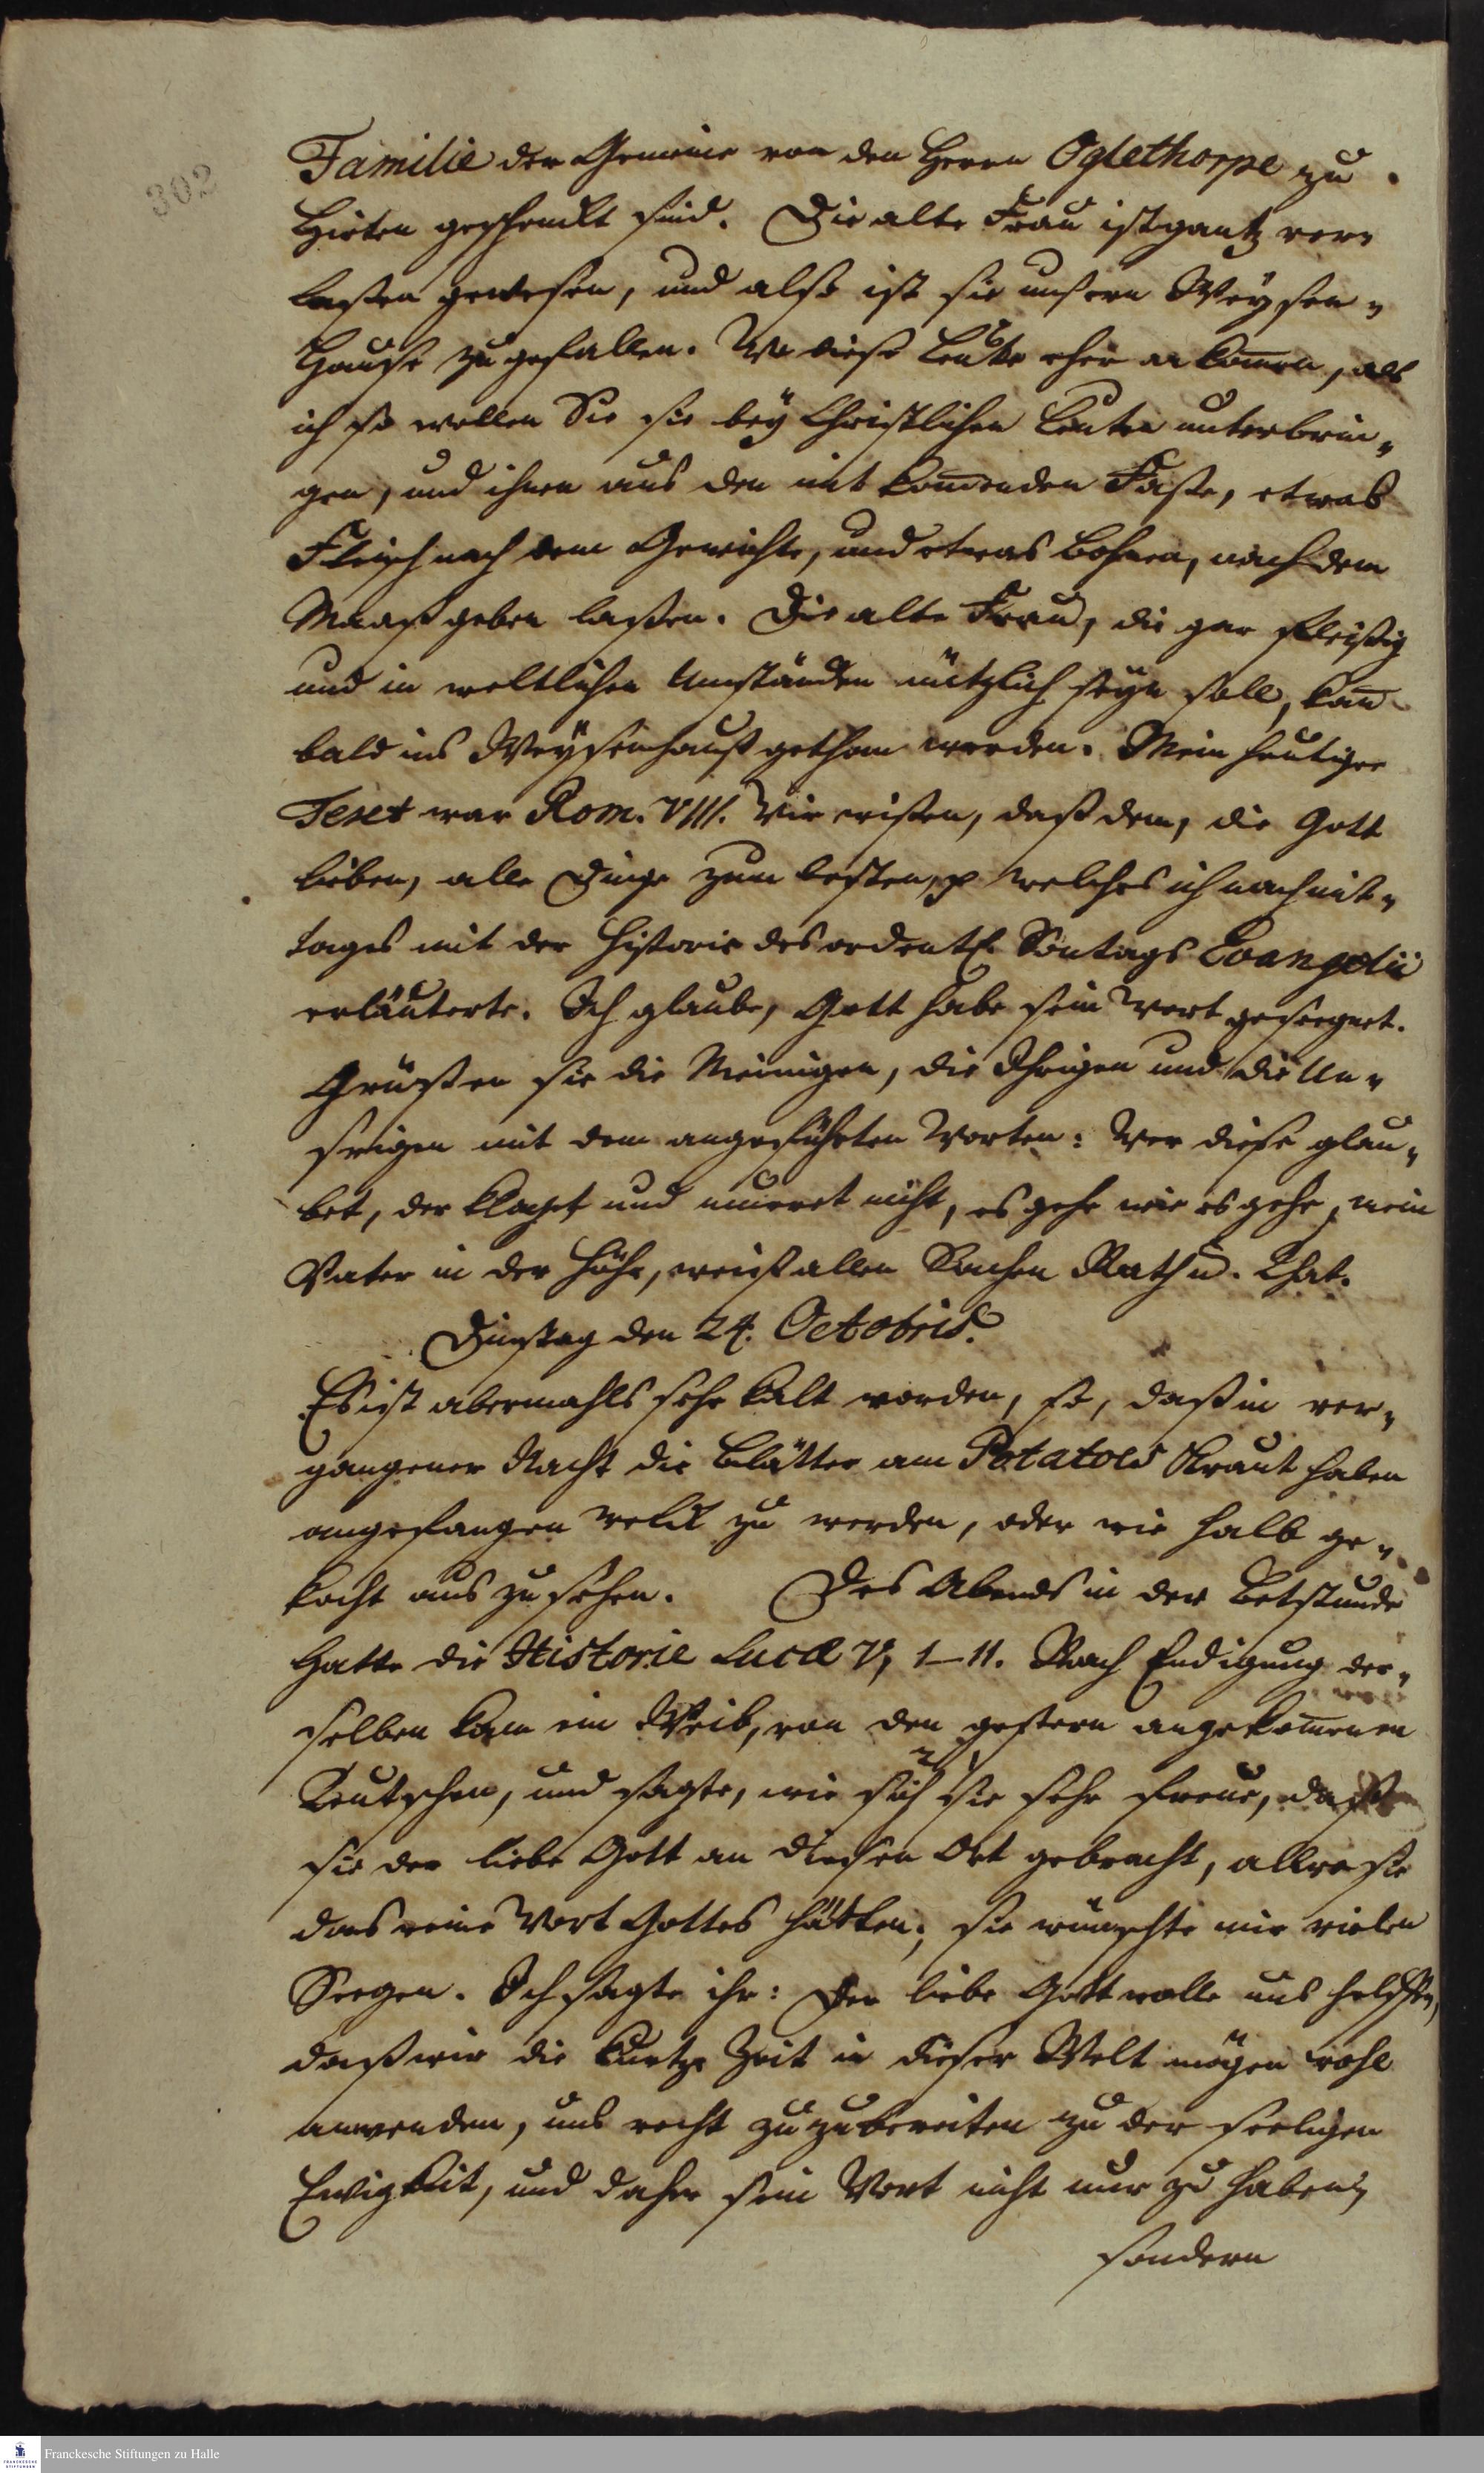 302
Familie der Gemeine von den Herrn Oglethorpe zu
Hirten geschenckt sind. Die alte Frau ist gantz ver¬
laßen gewesen, und also ist sie unsern Weysen¬
Hause zugefallen. Wo diese Leute eher ankom̅en, als
ich so wollen Sie sie bey Christlichen Leuten unterbrin¬
gen, und ihnen aus den mit kom̅enden Faße, etwas
Fleisch nach dem Gewichte, und etwas Bohnen, nach dem
Maaß geben laßen. Die alte Frau, die gar fleißig
und in weltlichen Umständen nützlich seyn soll, kan̅
bald ins Weysenhauß gethan werden. Mein heutiger
Text war Rom. VIII. Wir wißen, daß dem, die Gott
lieben, alle Dinge zum besten, p welches ich nachmit¬
tages mit der Historie des ordentl. Sontags Evangelii
erläuterte. Ich glaube, Gott habe sein Wort geseegnet.
Grüßen sie die Meinigen, die Ihrigen und die Un¬
srigen mit dem angeführten Worten: Wer diese glau¬
bet, der klaget und murret nicht, es gehe wie es gehe, mein
Vater in der Höhe, weiß allen Sachen Rath u. That.
Dinstag den 24. Octobris.
Es ist abermahls sehr kalt worden, so, daß in ver¬
gangener Nacht die Blätter am Potatoes Kraut haben
angefangen welck zu werden, oder wie halb ge¬
kocht aus zu sehen. Des Abends in der Betstunde
Hatte die Historie Lucæ V, 1–11. Nach Endigung der¬
selben kam ein Weib, von den gestern angekom̅enen
Teutschen, und sagte, wie sich sie sehr freue, daß
sie der liebe Gott an diesen Ort gebracht, allwo sie
das reine Wort Gottes hätten; sie wünschte mir vielen
Seegen. Ich sagte ihr: Der liebe Gott wolle uns helffen,
daß wir die kurtze Zeit in dieser Welt mögen wohl
anwenden, uns recht zuzubereiten zu der seeligen
Ewigkeit, und daher sein Wort nicht nur zu haben,
sondern
Franckesche Stiftungen zu Halle
FRANCKESCHE
STIFTUNGEN